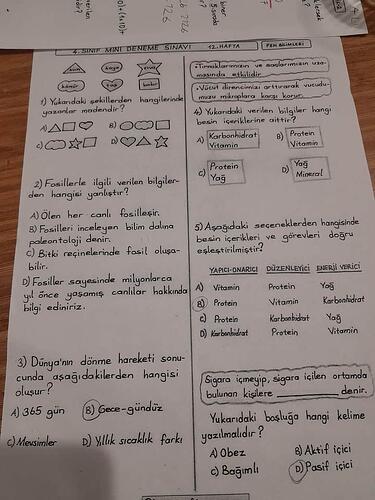 4. SINIF MİNİ DENEME SINAVI
12. HAFTA
FEN BİLİMLERİ
kum
kaya
kömür
taş
bakır
1) Yukarıdaki şekillerden hangilerinde
yazanlar madendir?
A)
B)
C)
D)
2) Fosillerle ilgili verilen bilgiler-
den hangisi yanlıştır?
A) Ölen her canlı fosilleşir.
B) Fosilleri inceleyen bilim dalına
paleontoloji denir.
C) Bitki reçinelerinde fosil oluşa-
bilir.
D) Fosiller sayesinde milyonlarca
yıl önce yaşamış canlılar hakkında
bilgi ediniriz.
3) Dünya'nın dönme hareketi sonu-
cunda aşağıdakilerden hangisi
oluşur?
A) 365 gün
B) Gece-gündüz
C) Mevsimler
D) Yıllık sıcaklık farkı
• Tırnaklarımızın ve saçlarımızın uza-
masında etkilidir.
• Vücut direncimizi arttırarak vücudu-
muzu mikroplara karşı korur.
4) Yukarıdaki verilen bilgiler hangi
besin içeriklerine aittir?
A) Karbonhidrat
Vitamin
B) Protein
Vitamin
C) Protein
Yağ
D) Yağ
Mineral
5) Aşağıdaki seçeneklerden hangisinde
besin içerikleri ve görevleri doğru
eşleştirilmiştir?
YAPICI-ONARICI DÜZENLEYİCİ ENERJİ VERİCİ
A) Vitamin Protein Yağ
B) Protein Vitamin Karbonhidrat
C) Protein Karbonhidrat Yağ
D) Karbonhidrat Protein Vitamin
Sigara içmeyip, sigara içilen ortamda
bulunan kişilere ________ denir.
Yukarıdaki boşluğa hangi kelime
yazılmalıdır?
A) Obez
B) Aktif içici
C) Bağımlı
D) Pasif içici